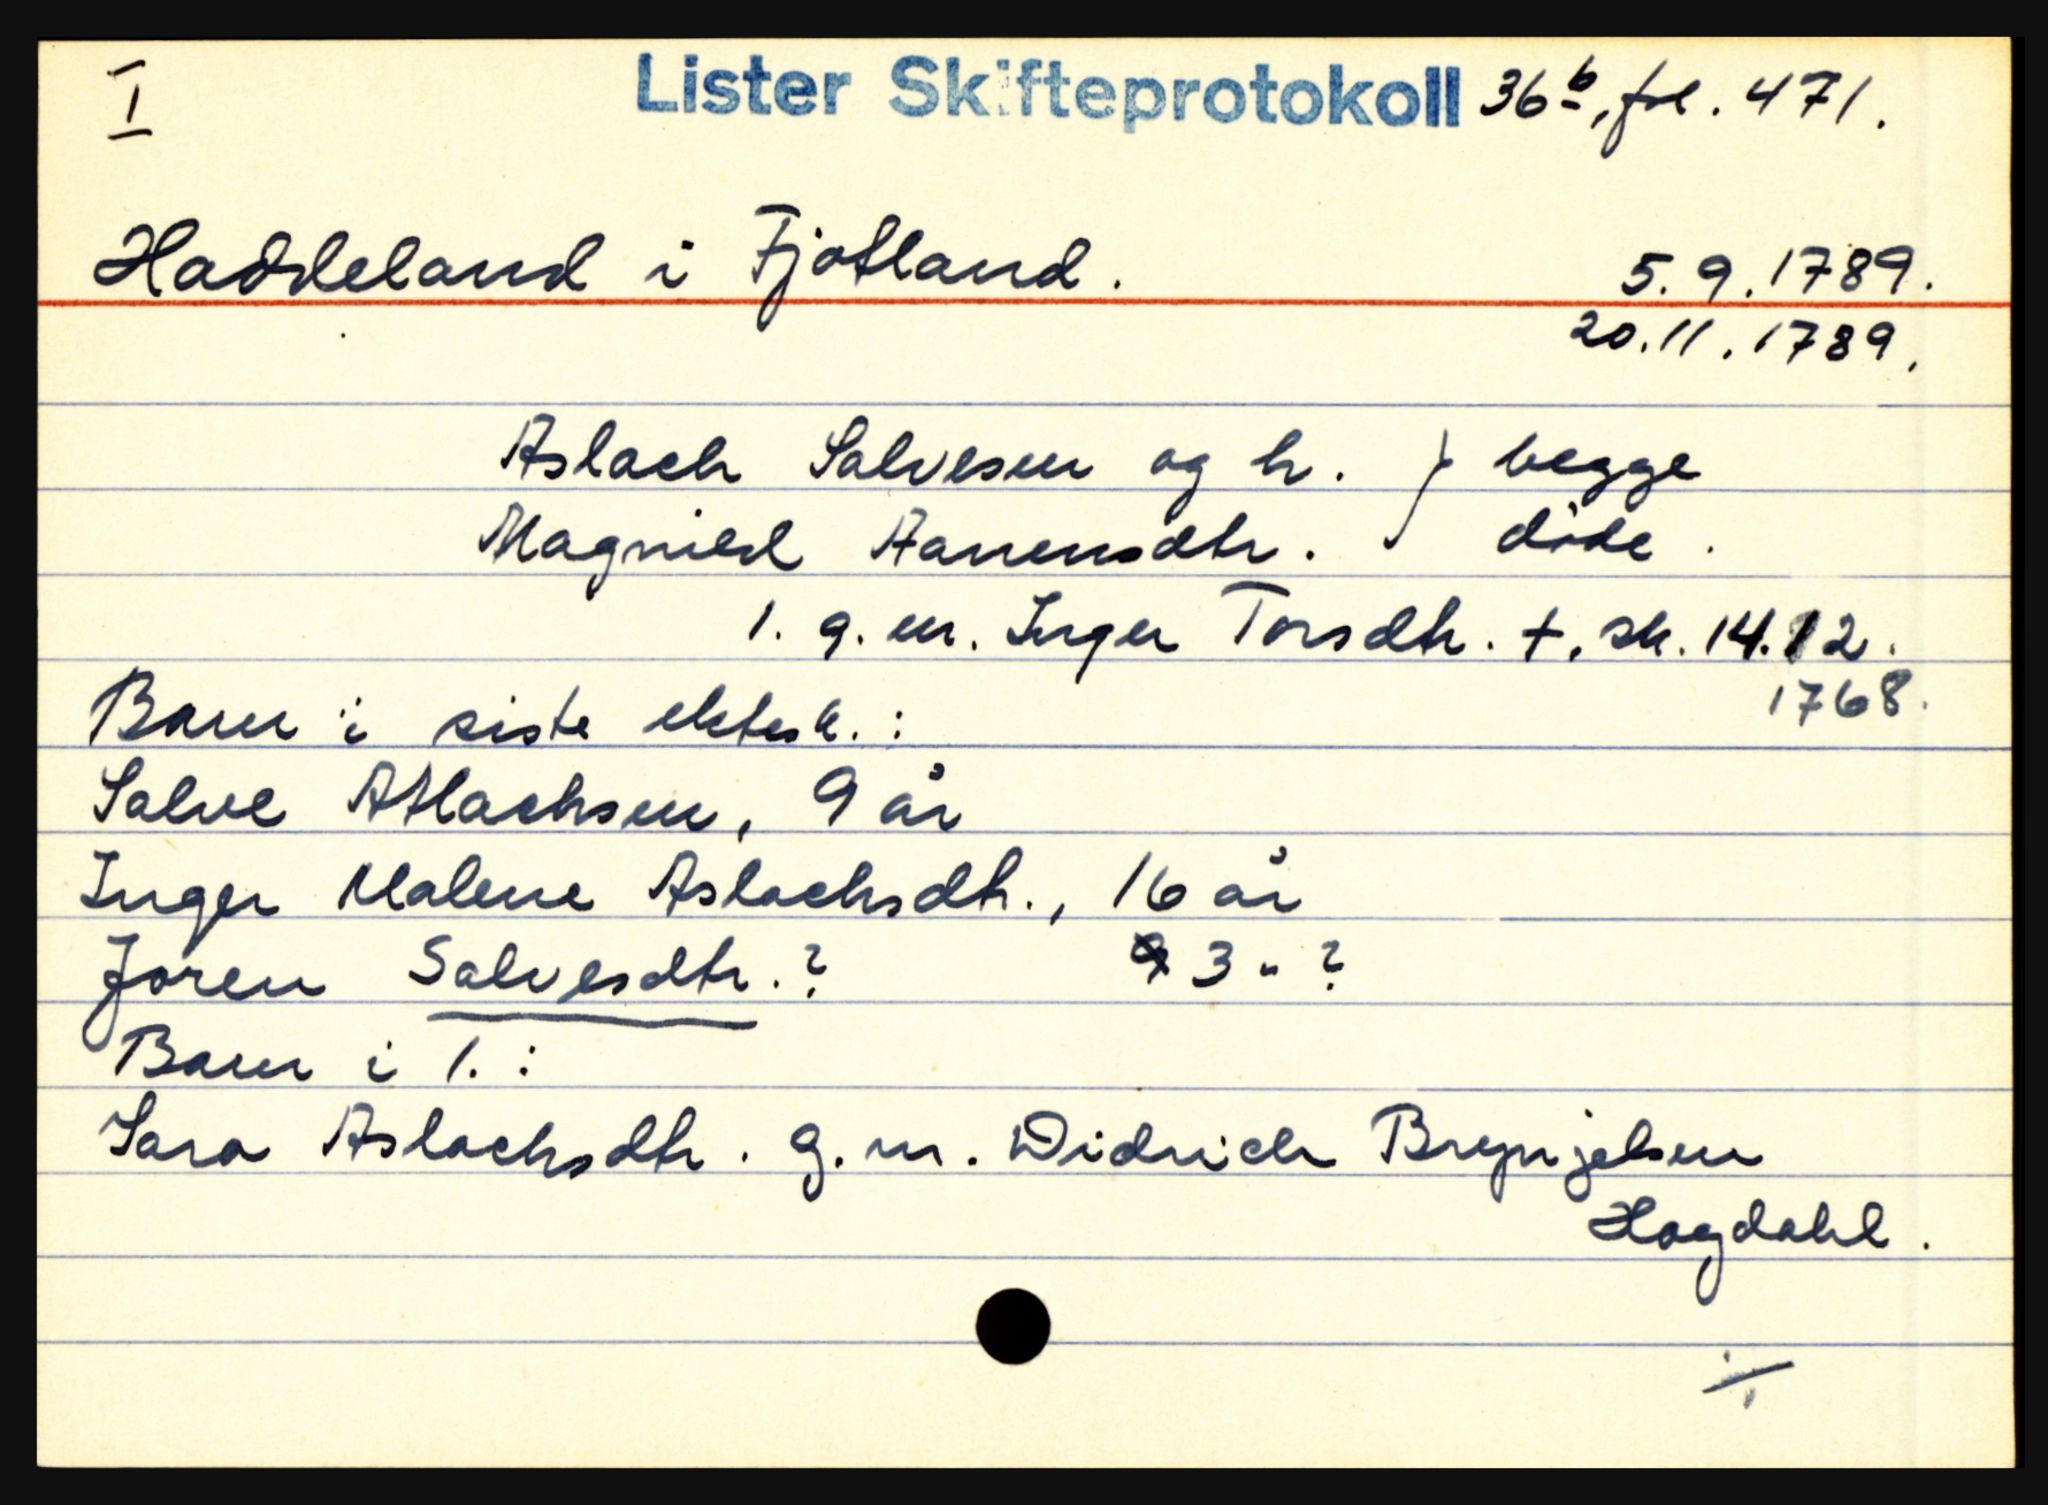 I Lister Skifteprotokoll 36b, fol. 471.
Haddeland i Fjotland. 5.9.1789.
20.11.1789.
Aslach Salvesen og h. } begge
Magnild Aanensdtr. døde.
1. g.m. Inger Torsdtr. +, sk. 14.12.
1768.
Barn i siste ektesk.:
Salve Atlachsen, 9 år
Inger Malene Aslachsdtr., 16 år
Joren Salvesdtr.? 3 " ?
Barn i 1.:
Sara Aslachsdtr. g.m. Didrich Brynjelsen
Hogdahl.